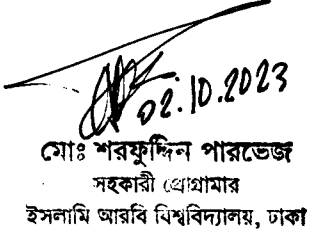 02.10.2023
মোঃ শরফুদ্দিন পারভেজ
সহকারী প্রোগ্রামার
ইসলামি আরবি বিশ্ববিদ্যালয়, ঢাকা